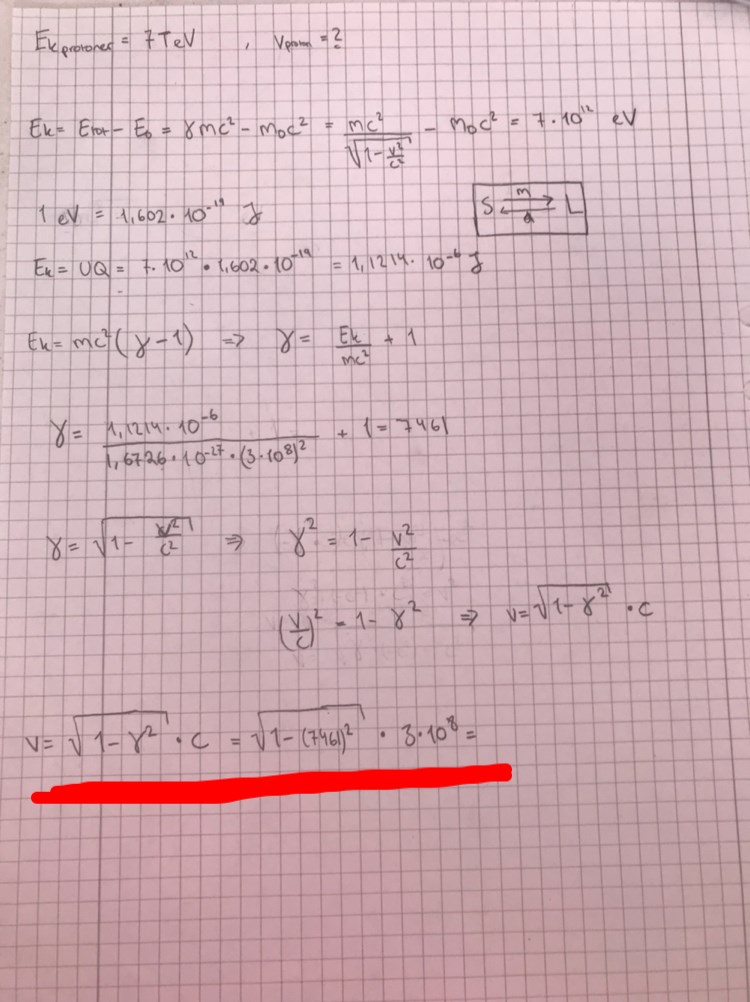 Ek protoner = 7 TeV , Vproton = ?
Ek = Etot - E0 = γmc² - m₀c² = mc²/√(1 - v²/c²) - m₀c² = 7·10¹² eV
1 eV = 1,602·10⁻¹⁹ J
S m L
d
Ek = UQ = 7·10¹² · 1,602·10⁻¹⁹ = 1,1214·10⁻⁶ J
Ek = mc²(γ - 1) ⇒ γ = Ek/mc² + 1
γ = 1,1214·10⁻⁶/1,6726·10⁻²⁷·(3·10⁸)² + 1 = 7461
γ = √(1 - v²/c²) ⇒ γ² = 1 - v²/c²
(v/c)² = 1 - γ² ⇒ v = √(1 - γ²) · c
v = √(1 - γ²) · c = √(1 - (7461)²) · 3·10⁸ =